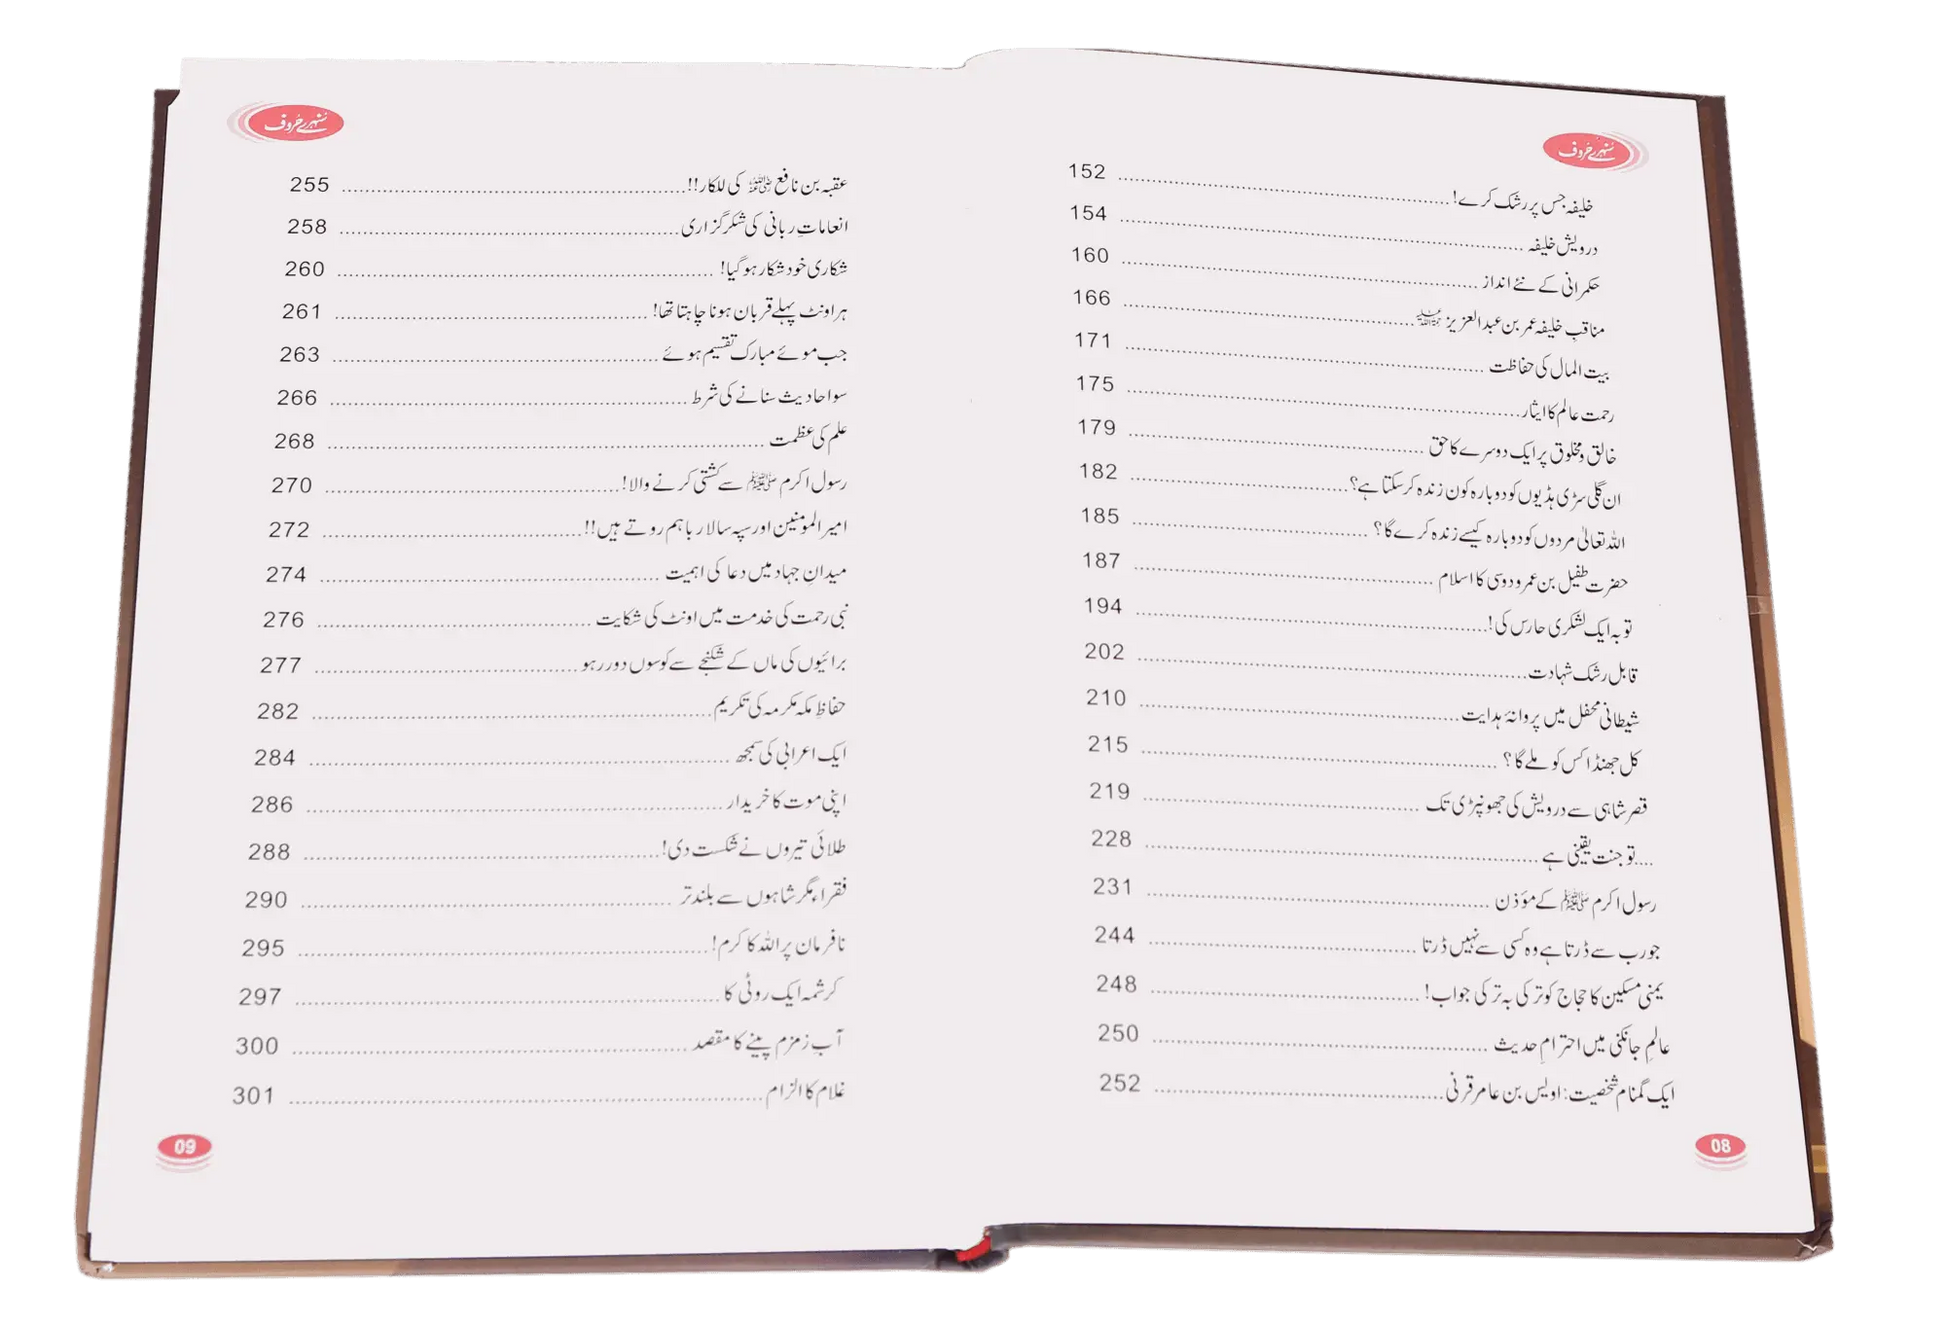 سُنہرے حُروف
خلیفہ جس پر رشک کرے! 152
درویش خلیفہ 154
حکمرانی کے نئے انداز 160
مناقبِ خلیفہ عمر بن عبدالعزیز رحمہ اللہ 166
بیت المال کی حفاظت 171
رحمت عالم کا ایثار 175
خالق و مخلوق پر ایک دوسرے کا حق 179
ان گلی سڑی ہڈیوں کو دوبارہ کون زندہ کرسکتا ہے؟ 182
اللہ تعالیٰ مردوں کو دوبارہ کیسے زندہ کرے گا؟ 185
حضرت طفیل بن عمرو دوسی کا اسلام 187
توبہ ایک لشکری حارس کی! 194
قابل رشک شہادت 202
شیطانی محفل میں پروانۂ ہدایت 210
کل جھنڈا کس کو ملے گا؟ 215
قصر شاہی سے درویش کی جھونپڑی تک 219
....تو جنت یقینی ہے 228
رسول اکرم ﷺ کے مؤذن 231
جو رب سے ڈرتا ہے وہ کسی سے نہیں ڈرتا 244
یمنی مسکین کا حجاج کو ترکی بہ ترکی جواب! 248
عالمِ جانکنی میں احترامِ حدیث 250
ایک گمنام شخصیت: اویس بن عامر قرنی 252
08
سُنہرے حُروف
عقبہ بن نافع رضی اللہ عنہ کی للکار!! 255
انعاماتِ ربانی کی شکر گزاری 258
شکاری خود شکار ہوگیا! 260
ہر اونٹ پہلے قربان ہونا چاہتا تھا! 261
جب موئے مبارک تقسیم ہوئے 263
سو احادیث سنانے کی شرط 266
علم کی عظمت 268
رسول اکرم ﷺ سے کشتی کرنے والا! 270
امیر المومنین اور سپہ سالار باہم روتے ہیں!! 272
میدانِ جہاد میں دعا کی اہمیت 274
نبی رحمت کی خدمت میں اونٹ کی شکایت 276
برائیوں کی ماں کے شکنجے سے کوسوں دور رہو 277
حفاظِ مکہ مکرمہ کی تکریم 282
ایک اعرابی کی سمجھ 284
اپنی موت کا خریدار 286
طلائی تیروں نے شکست دی! 288
فقراء مگر شاہوں سے بلند تر 290
نافرمان پر اللہ کا کرم! 295
کرشمہ ایک روٹی کا 297
آب زمزم پینے کا مقصد 300
غلام کا الزام 301
09